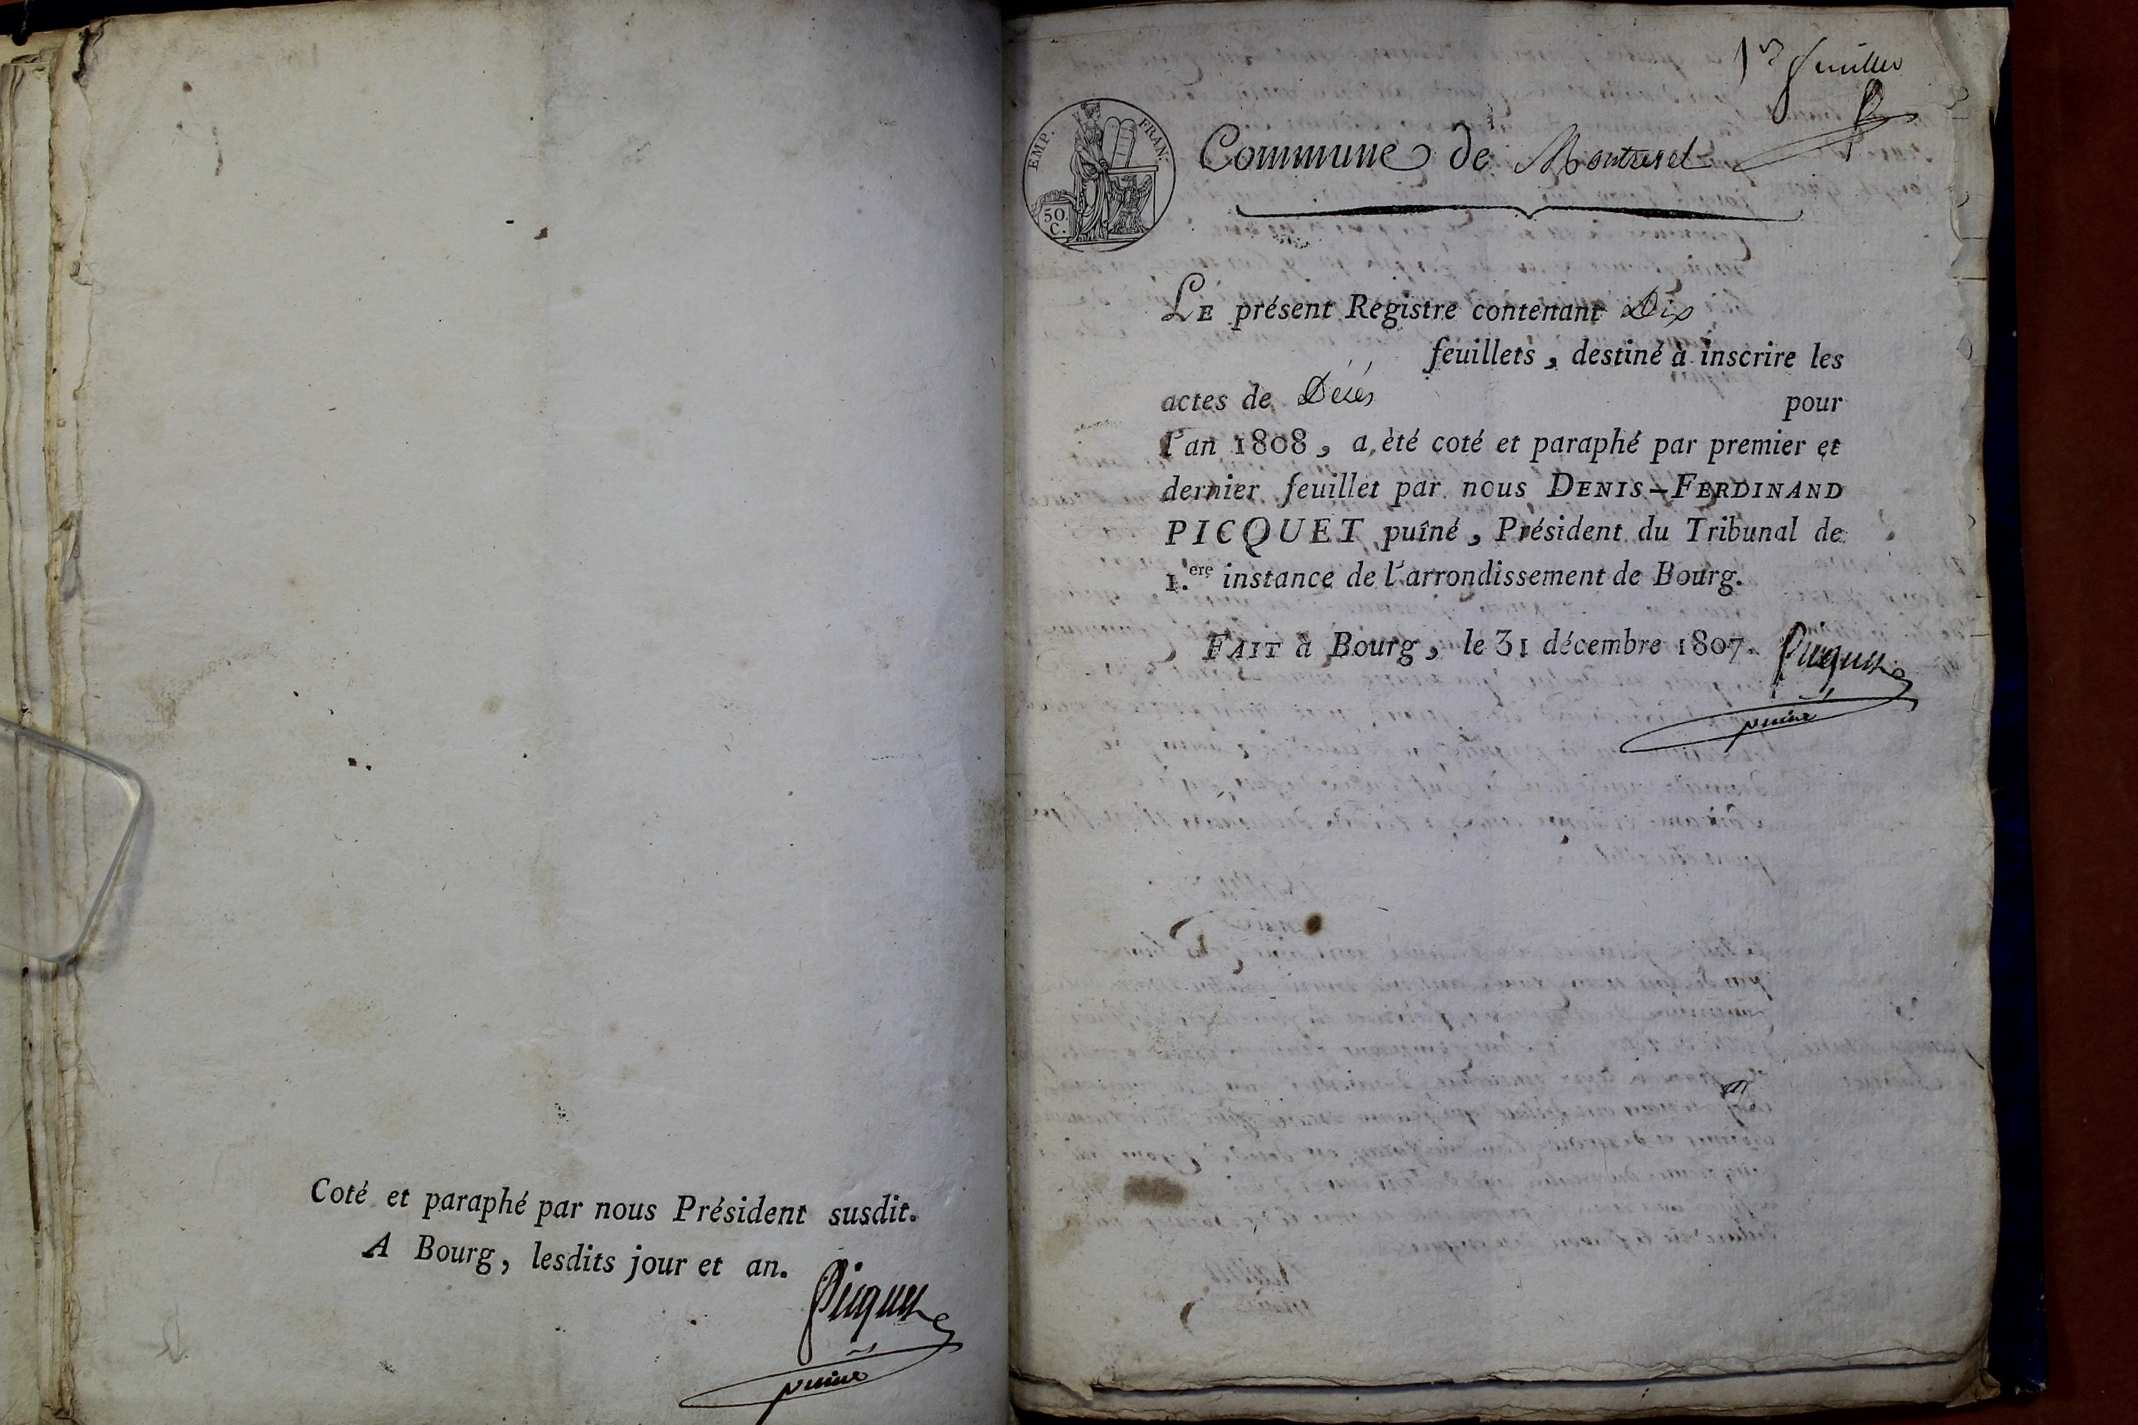 Coté et paraphé par nous Président susdit.
A Bourg, lesdits jour et an.
Picquet
puiné
1er feuillet
EMP. FRAN.
50.
C.
Commune de
LE présent Registre contenant Dix
feuillets, destiné à inscrire les
actes de Décés pour
l'an 1808, a été coté et paraphé par premier et
dernier feuillet par nous DENIS-FERDINAND
PICQUET puîné, Président du Tribunal de
1.ere instance de l'arrondissement de Bourg.
FAIT à Bourg, le 31 décembre 1807.
Picquet
puiné